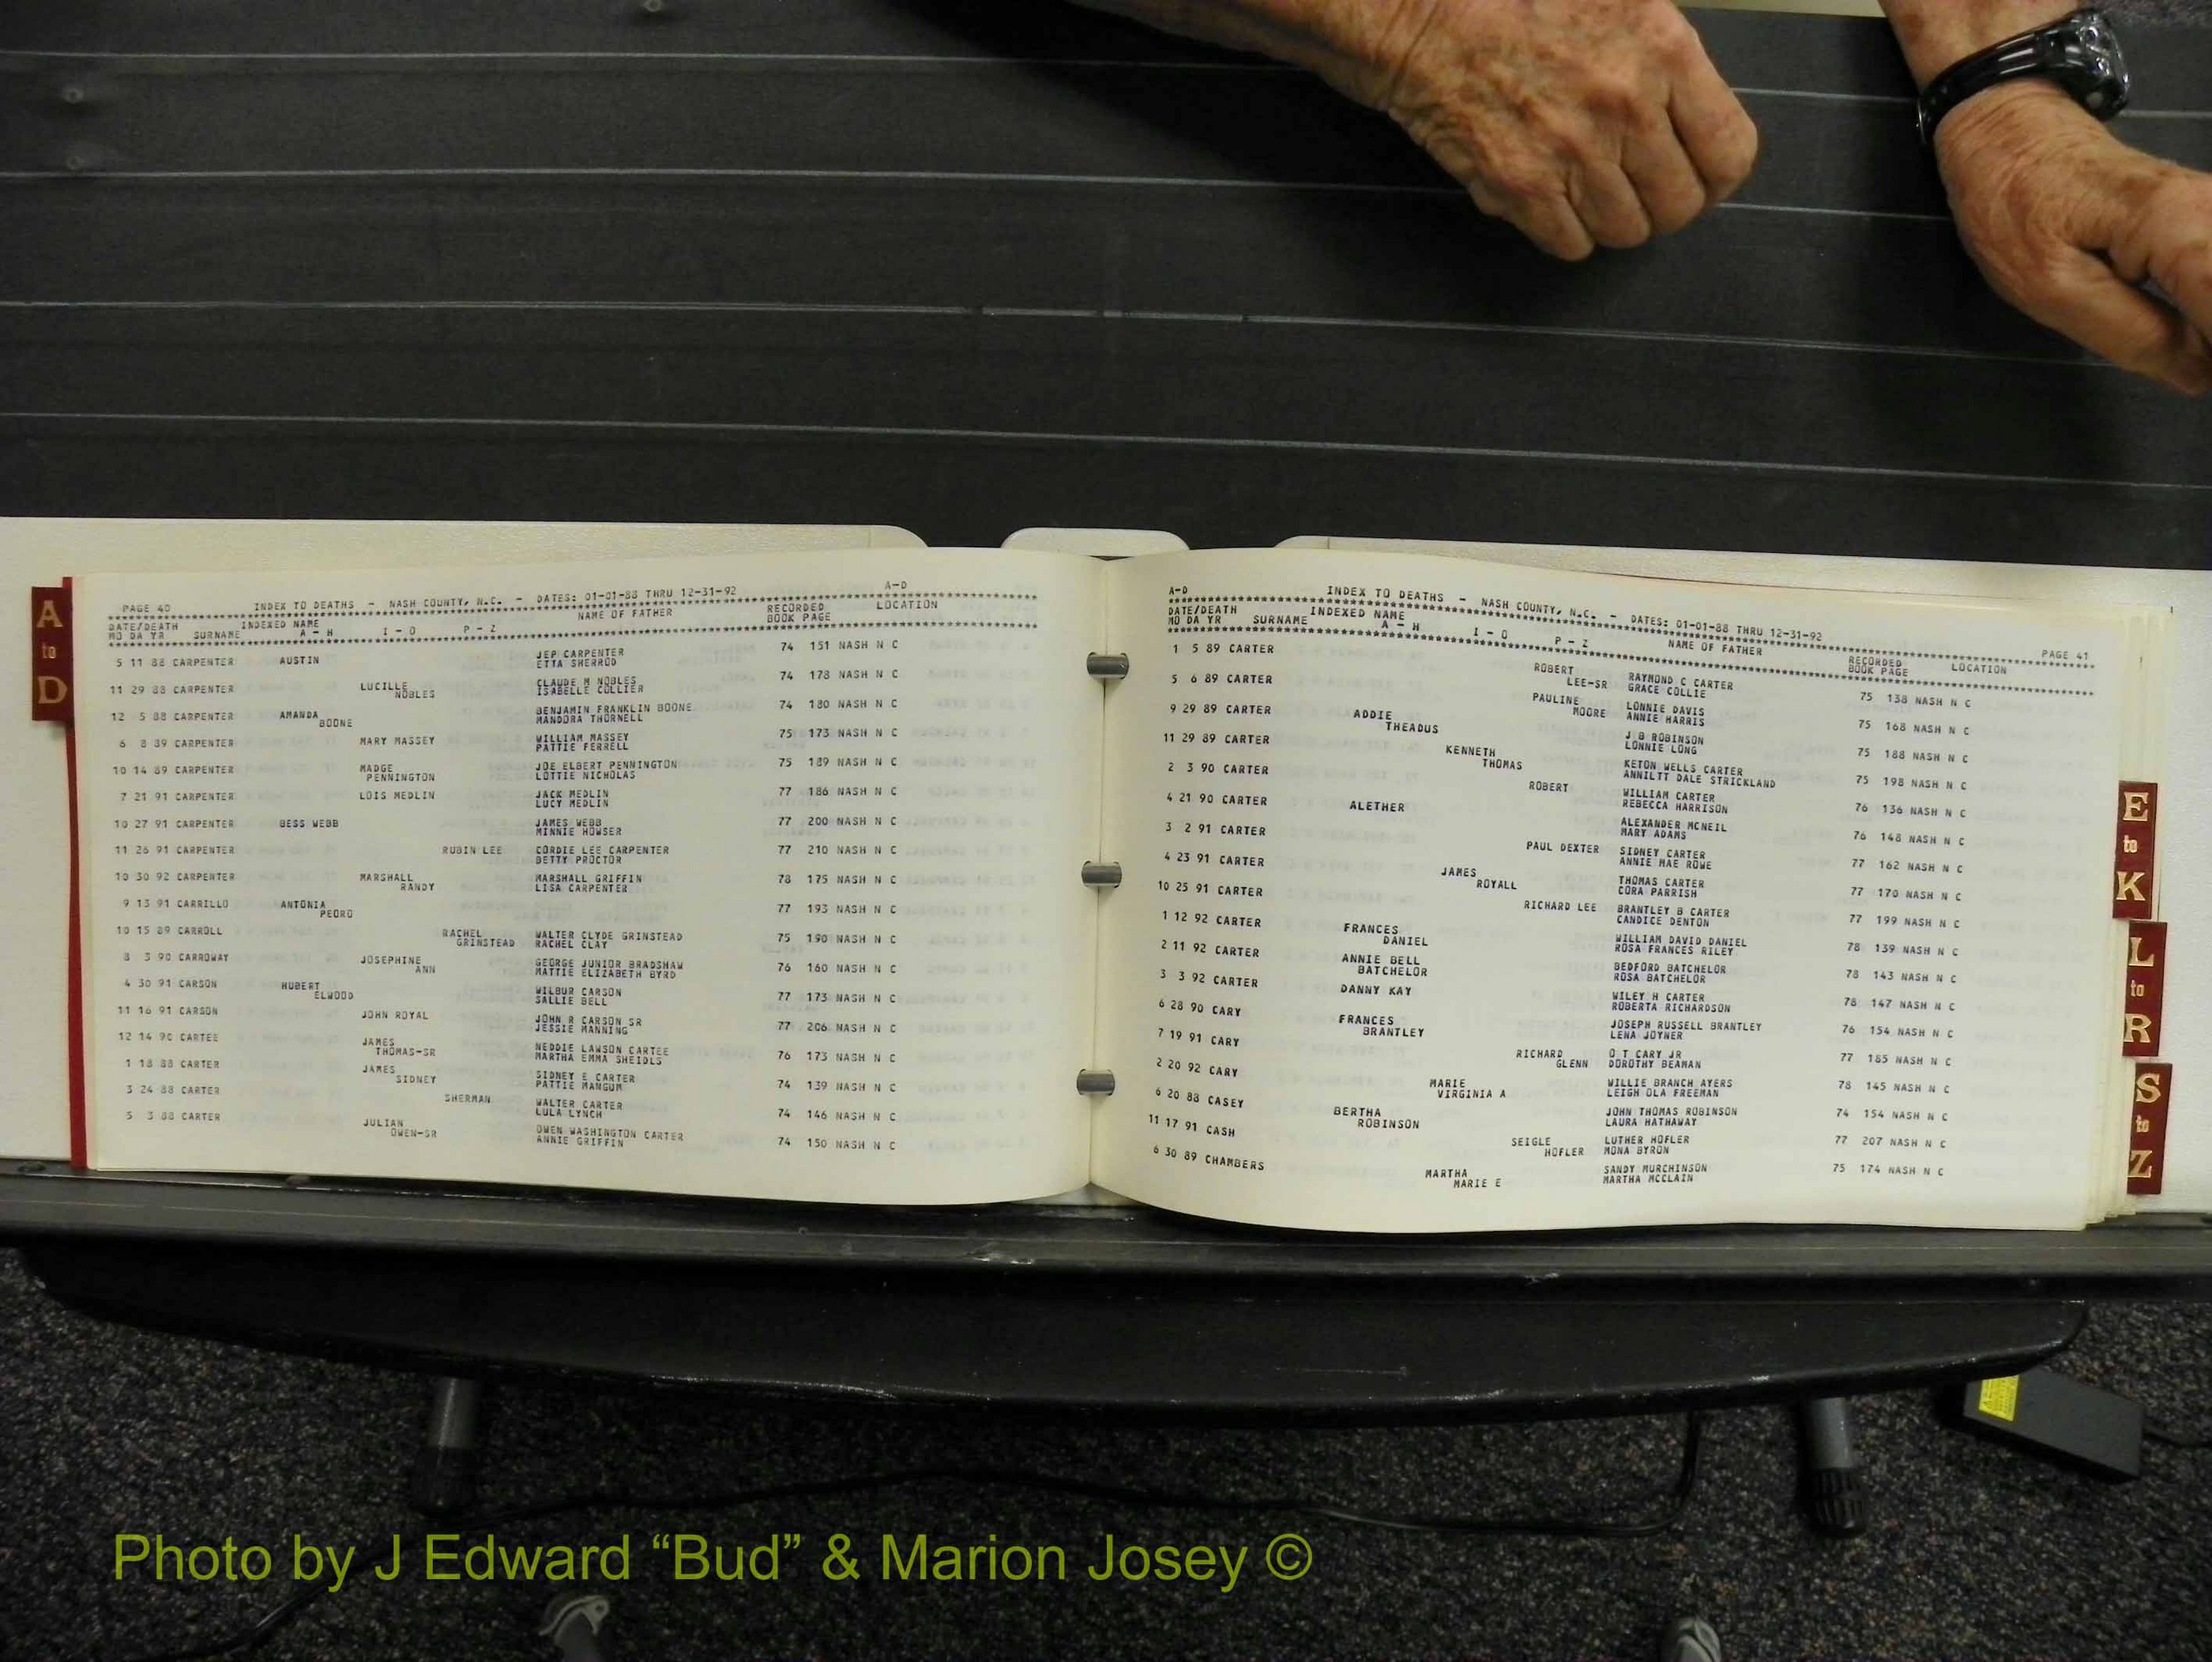 A
to
D
PAGE 40 INDEX TO DEATHS - NASH COUNTY, N.C. - DATES: 01-01-88 THRU 12-31-92 A-D
DATE/DEATH INDEXED NAME NAME OF FATHER RECORDED LOCATION
MO DA YR SURNAME A - H I - O P - Z BOOK PAGE
5 11 88 CARPENTER AUSTIN JEP CARPENTER 74 151 NASH N C
ETTA SHERROD
11 29 88 CARPENTER LUCILLE CLAUDE M NOBLES 74 178 NASH N C
NOBLES ISABELLE COLLIER
12 5 88 CARPENTER AMANDA BENJAMIN FRANKLIN BOONE 74 180 NASH N C
BOONE MANDORA THORNELL
6 8 89 CARPENTER MARY MASSEY WILLIAM MASSEY 75 173 NASH N C
PATTIE FERRELL
10 14 89 CARPENTER MADGE JOE ELBERT PENNINGTON 75 189 NASH N C
PENNINGTON LOTTIE NICHOLAS
7 21 91 CARPENTER LOIS MEDLIN JACK MEDLIN 77 186 NASH N C
LUCY MEDLIN
10 27 91 CARPENTER BESS WEBB JAMES WEBB 77 200 NASH N C
MINNIE HOWSER
11 26 91 CARPENTER RUBIN LEE CORDIE LEE CARPENTER 77 210 NASH N C
BETTY PROCTOR
10 30 92 CARPENTER MARSHALL MARSHALL GRIFFIN 78 175 NASH N C
RANDY LISA CARPENTER
9 13 91 CARRILLO ANTONIA 77 193 NASH N C
PEDRO
10 15 89 CARROLL RACHEL WALTER CLYDE GRINSTEAD 75 190 NASH N C
GRINSTEAD RACHEL CLAY
8 3 90 CARROWAY JOSEPHINE GEORGE JUNIOR BRADSHAW 76 160 NASH N C
ANN MATTIE ELIZABETH BYRD
4 30 91 CARSON HUBERT WILBUR CARSON 77 173 NASH N C
ELWOOD SALLIE BELL
11 16 91 CARSON JOHN ROYAL JOHN R CARSON SR 77 206 NASH N C
JESSIE MANNING
12 14 90 CARTEE JAMES NEDDIE LAWSON CARTEE 76 173 NASH N C
THOMAS-SR MARTHA EMMA SHEIDLS
1 18 88 CARTER JAMES SIDNEY E CARTER 74 139 NASH N C
SIDNEY PATTIE MANGUM
3 24 88 CARTER SHERMAN WALTER CARTER 74 146 NASH N C
LULA LYNCH
5 3 88 CARTER JULIAN OWEN WASHINGTON CARTER 74 150 NASH N C
OWEN-SR ANNIE GRIFFIN
A-D INDEX TO DEATHS - NASH COUNTY, N.C. - DATES: 01-01-88 THRU 12-31-92 PAGE 41
DATE/DEATH INDEXED NAME NAME OF FATHER RECORDED LOCATION
MO DA YR SURNAME A - H I - O P - Z BOOK PAGE
1 5 89 CARTER ROBERT RAYMOND C CARTER 75 138 NASH N C
LEE-SR GRACE COLLIE
5 6 89 CARTER PAULINE LONNIE DAVIS 75 168 NASH N C
MOORE ANNIE HARRIS
9 29 89 CARTER ADDIE J B ROBINSON 75 188 NASH N C
THEADUS LONNIE LONG
11 29 89 CARTER KENNETH KETON WELLS CARTER 75 198 NASH N C
THOMAS ANNILTT DALE STRICKLAND
2 3 90 CARTER ROBERT WILLIAM CARTER 76 136 NASH N C
REBECCA HARRISON
4 21 90 CARTER ALETHER ALEXANDER MCNEIL 76 148 NASH N C
MARY ADAMS
3 2 91 CARTER PAUL DEXTER SIDNEY CARTER 77 162 NASH N C
ANNIE MAE ROWE
4 23 91 CARTER JAMES THOMAS CARTER 77 170 NASH N C
ROYALL CORA PARRISH
10 25 91 CARTER RICHARD LEE BRANTLEY B CARTER 77 199 NASH N C
CANDICE DENTON
1 12 92 CARTER FRANCES WILLIAM DAVID DANIEL 78 139 NASH N C
DANIEL ROSA FRANCES RILEY
2 11 92 CARTER ANNIE BELL BEDFORD BATCHELOR 78 143 NASH N C
BATCHELOR ROSA BATCHELOR
3 3 92 CARTER DANNY KAY WILEY H CARTER 78 147 NASH N C
ROBERTA RICHARDSON
6 28 90 CARY FRANCES JOSEPH RUSSELL BRANTLEY 76 154 NASH N C
BRANTLEY LENA JOYNER
7 19 91 CARY RICHARD O T CARY JR 77 185 NASH N C
GLENN DOROTHY BEAMAN
2 20 92 CARY MARIE WILLIE BRANCH AYERS 78 145 NASH N C
VIRGINIA A LEIGH OLA FREEMAN
6 20 88 CASEY BERTHA JOHN THOMAS ROBINSON 74 154 NASH N C
ROBINSON LAURA HATHAWAY
11 17 91 CASH SEIGLE LUTHER HOFLER 77 207 NASH N C
HOFLER MONA BYRON
6 30 89 CHAMBERS MARTHA SANDY MURCHINSON 75 174 NASH N C
MARIE E MARTHA MCCLAIN
E
to
K
L
to
R
S
to
Z
Photo by J Edward “Bud” & Marion Josey ©